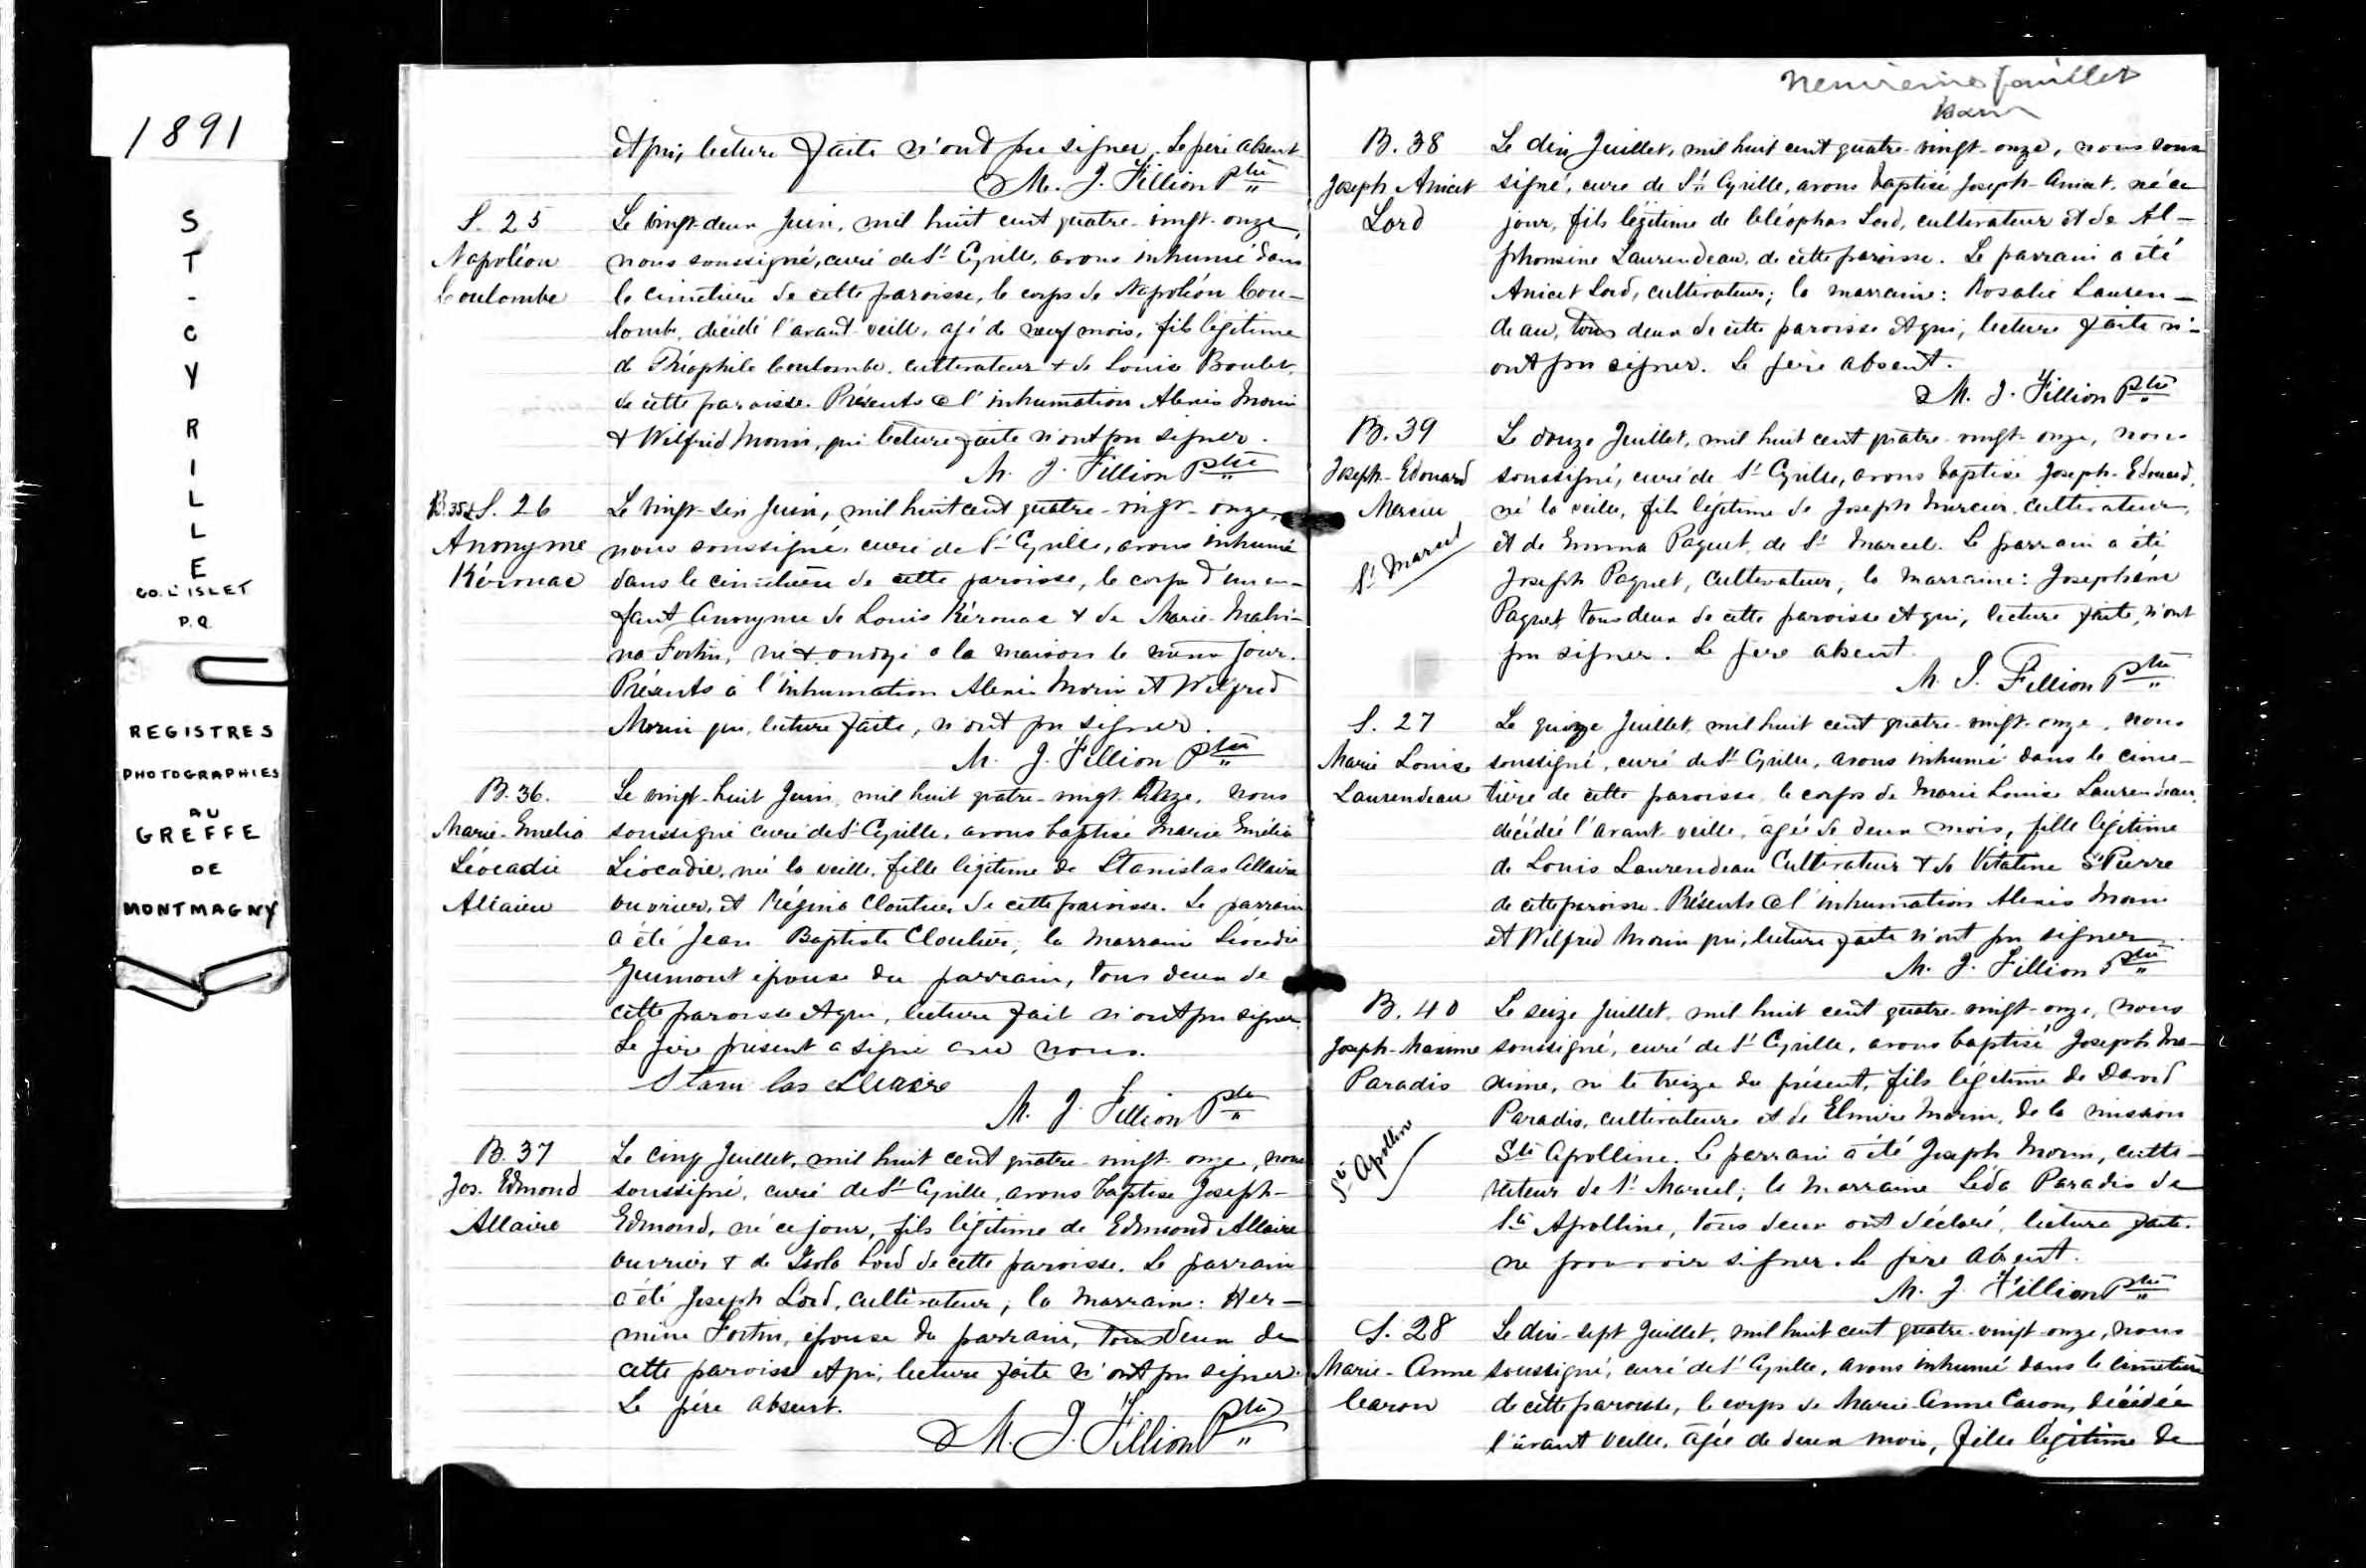 1891
ST-CYRILLE
CO. L'ISLET
P.Q.
REGISTRES
PHOTOGRAPHIES
AU
GREFFE
DE
MONTMAGNY
et qui, lecture faite n'ont pu signer. Le père absent
M. J. Fillion Ptre
S. 25
Napoléon
Coulombe
Le vingt-deux Juin, mil huit cent quatre-vingt-onze,
nous soussigné, curé de St Cyrille, avons inhumé dans
le cimetière de cette paroisse, le corps de Napoléon Cou-
lombe, décédé l'avant-veille, agé de neuf mois, fils légitime
de Théophile Coulombe, cultivateur & de Louise Boulet,
de cette paroisse. Présents à l'inhumation Alexis Morin
& Wilfrid Morin, qui lecture faite n'ont pu signer.
M. J. Fillion Ptre
B.35 & S. 26
Anonyme
Kérouac
Le vingt-six Juin, mil huit cent quatre-vingt-onze,
nous soussigné, curé de St Cyrille, avons inhumé
dans le cimetière de cette paroisse, le corps d'un en-
fant Anonyme de Louis Kérouac & de Marie-Malvi-
na Fortin, né & ondoyé à la maison le même jour.
Présents à l'inhumation Alexis Morin et Wilfred
Morin qui, lecture faite, n'ont pu signer.
M. J. Fillion Ptre
B. 36.
Marie-Emélia
Léocadie
Allaire
Le vingt-huit Juin, mil huit quatre-vingt Onze, nous
soussigné curé de St Cyrille, avons baptisé Marie Emélia
Léocadie, née la veille, fille légitime de Stanislas Allaire
ouvrier, et Régina Cloutier, de cette paroisse. Le parrain
a été Jean Baptiste Cloutier, la Marraine Léocadie
Guimont épouse du parrain, tous deux de
cette paroisse et qui, lecture fait n'ont pu signer.
Le père présent a signé avec nous.
Stanislas Allaire
M. J. Fillion Ptre
B. 37
Jos. Edmond
Allaire
Le cinq Juillet, mil huit cent quatre-vingt-onze, nous
soussigné, curé de St Cyrille, avons baptisé Joseph-
Edmond, né ce jour, fils légitime de Edmond Allaire
ouvrier & de Isola Lord de cette paroisse. Le parrain
a été Joseph Lord, cultivateur, la Marraine: Her-
mine Fortin, épouse du parrain, tous deux de
cette paroisse et qui, lecture faite n'ont pu signer.
Le père absent.
M. J. Fillion Ptre
neuvième feuillet
B. 38
Joseph Anicet
Lord
Le dix Juillet, mil huit cent quatre-vingt-onze, nous sous
signé, curé de St Cyrille, avons baptisé Joseph-Anicet, né ce
jour, fils légitime de Cléophas Lord, cultivateur et de Al-
phonsine Laurendeau, de cette paroisse. Le parrain a été
Anicet Lord, cultivateur; la marraine: Rosalie Lauren-
deau, tous deux de cette paroisse et qui, lecture faite n'-
ont pu signer. Le père absent.
M. J. Fillion Ptre
B. 39
Joseph-Edouard
Mercier
St Marcel
Le douze Juillet, mil huit cent quatre-vingt-onze, nous
soussigné, curé de St Cyrille, avons baptisé Joseph-Edouard,
né la veille, fils légitime de Joseph Mercier, cultivateur,
et de Emma Paquet, de St Marcel. Le parrain a été
Joseph Paquet, Cultivateur, la Marraine: Josephine
Paquet, tous deux de cette paroisse et qui, lecture faite, n'ont
pu signer. Le père absent.
M. J. Fillion Ptre
S. 27
Marie Louise
Laurendeau
Le quinze Juillet, mil huit cent quatre-vingt-onze, nous
soussigné, curé de St Cyrille, avons inhumé dans le cime-
tière de cette paroisse, le corps de Marie Louise Laurendeau,
décédée l'avant-veille, agée de deux mois, fille légitime
de Louis Laurendeau Cultivateur & de Vitaline St Pierre
de cette paroisse. Présents à l'inhumation Alexis Morin
et Wilfred Morin qui, lecture faite n'ont pu signer.
M. J. Fillion Ptre
B. 40
Joseph-Maxime
Paradis
Ste Apolline
Le seize Juillet, mil huit cent quatre-vingt-onze, nous
soussigné, curé de St Cyrille, avons baptisé Joseph Ma-
xime, né le treize du présent, fils légitime de David
Paradis, cultivateur et de Elmire Morin, de la mission
Ste Apolline. Le parrain a été Joseph Morin, culti-
vateur de St Marcel; la Marraine Léda Paradis de
Ste Apolline, tous deux ont déclaré, lecture faite,
ne pouvoir signer. Le père absent.
M. J. Fillion Ptre
S. 28
Marie-Anne
Caron
Le dix-sept Juillet, mil huit cent quatre-vingt-onze, nous
soussigné, curé de St Cyrille, avons inhumé dans le cimetière
de cette paroisse, le corps de Marie-Anne Caron, décédée
l'avant veille, agée de deux mois, fille légitime de